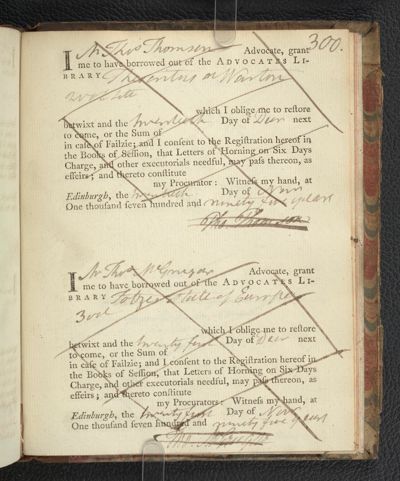 300.
I Mr Thos Thomson Advocate, grant
me to have borrowed out of the ADVOCATES LI-
BRARY
which I oblige me to restore
betwixt and the twentieth Day of Decr next
to come, or the Sum of
in case of Failzie; and I consent to the Registration hereof in
the Books of Session, that Letters of Horning on Six Days
Charge, and other executorials needful, may pass thereon, as
effeirs; and thereto constitute
my Procurator: Witness my hand, at
Edinburgh, the twentieth Day of Novr
One thousand seven hundred and ninety five years
Tho. Thomson
I Mr Thos McGrugar Advocate, grant
me to have borrowed out of the ADVOCATES LI-
BRARY state of Europe
3 vol
which I oblige me to restore
betwixt and the twenty first Day of Decr next
to come, or the Sum of
in case of Failzie; and I consent to the Registration hereof in
the Books of Session, that Letters of Horning on Six Days
Charge, and other executorials needful, may pass thereon, as
effeirs; and thereto constitute
my Procurators: Witness my hand, at
Edinburgh, the twenty first Day of Novr
One thousand seven hundred and ninety five years